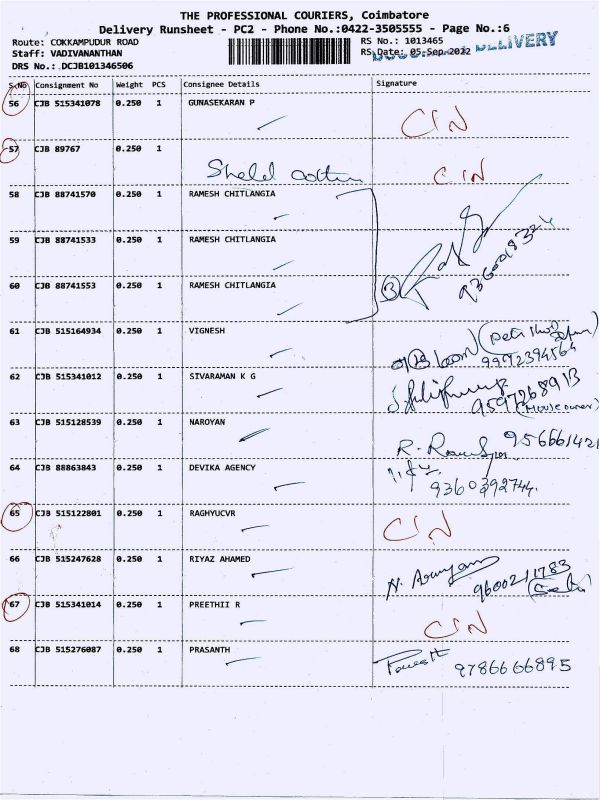 THE PROFESSIONAL COURIERS, Coimbatore
Delivery Runsheet - PC2 - Phone No.:0422-3505555 - Page No.:6
Route: COKKAMPUDUR ROAD RS No.: 1013465
Staff: VADIVANANTHAN RS Date: 05-Sep-2022 DELIVERY
DRS No.: DCJB101346506
S.No Consignment No Weight PCS Consignee Details Signature
56 CJB 515341078 0.250 1 GUNASEKARAN P CIN
57 CJB 89767 0.250 1
CIN
58 CJB 88741570 0.250 1 RAMESH CHITLANGIA
59 CJB 88741533 0.250 1 RAMESH CHITLANGIA
60 CJB 88741553 0.250 1 RAMESH CHITLANGIA
3
61 CJB 515164934 0.250 1 VIGNESH
62 CJB 515341012 0.250 1 SIVARAMAN K G
9597268913
63 CJB 515128539 0.250 1 NAROYAN
956661421
64 CJB 88863843 0.250 1 DEVIKA AGENCY
9360392744
65 CJB 515122801 0.250 1 RAGHYUCVR CIN
66 CJB 515247628 0.250 1 RIYAZ AHAMED
9600211783
67 CJB 515341014 0.250 1 PREETHII R
CIN
68 CJB 515276087 0.250 1 PRASANTH
9786666895